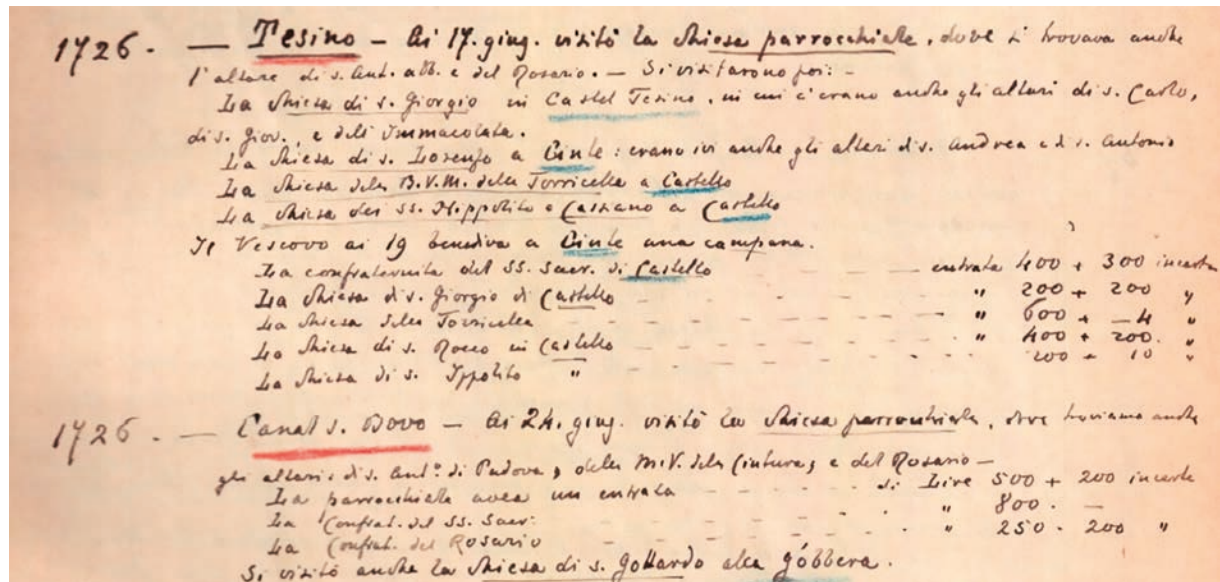 1726. — Tesino — Ai 17. giug. visitò la chiesa parrocchiale, dove si trovava anche
l'altare di s. Ant. abb. e del Rosario. — Si visitarono poi: -
La chiesa di s. Giorgio in Castel Tesino, in cui c'erano anche gli altari di s. Carlo,
di s. Giov., e dell'Immacolata.
La chiesa di s. Lorenzo a Cinte: erano ivi anche gli altari di s. Andrea e di s. Antonio
La chiesa della B.V.M. della Torricella a Castello
La chiesa dei SS. Hippolito e Cassiano a Castello
Il Vescovo ai 19 benediva a Cinte una campana.
La confraternita del SS. Sacr. di Castello — entrata 400 + 300 incerta
La chiesa di s. Giorgio di Castello - - - " 200 + 200 "
La chiesa della Torricella - - - " 600 + — 4 "
La chiesa di s. Rocco in Castello - - - " 400 + 200. "
La chiesa di s. Ippolito " - - - 200 + 10 "
1726. — Canal s. Bovo — Ai 24. giug. visitò la chiesa parrocchiale, dove troviamo anche
gli altari: di s. Ant.º di Padova, della M.V. della Cintura, e del Rosario —
La parrocchiale avea un entrata - - - di Lire 500 + 200 incerte
La Confrat. del SS. Sacr. - - - " 800. —
La Confrat. del Rosario - - - " 250. 200 "
Si visitò anche la chiesa di s. Gottardo alla góbbera.